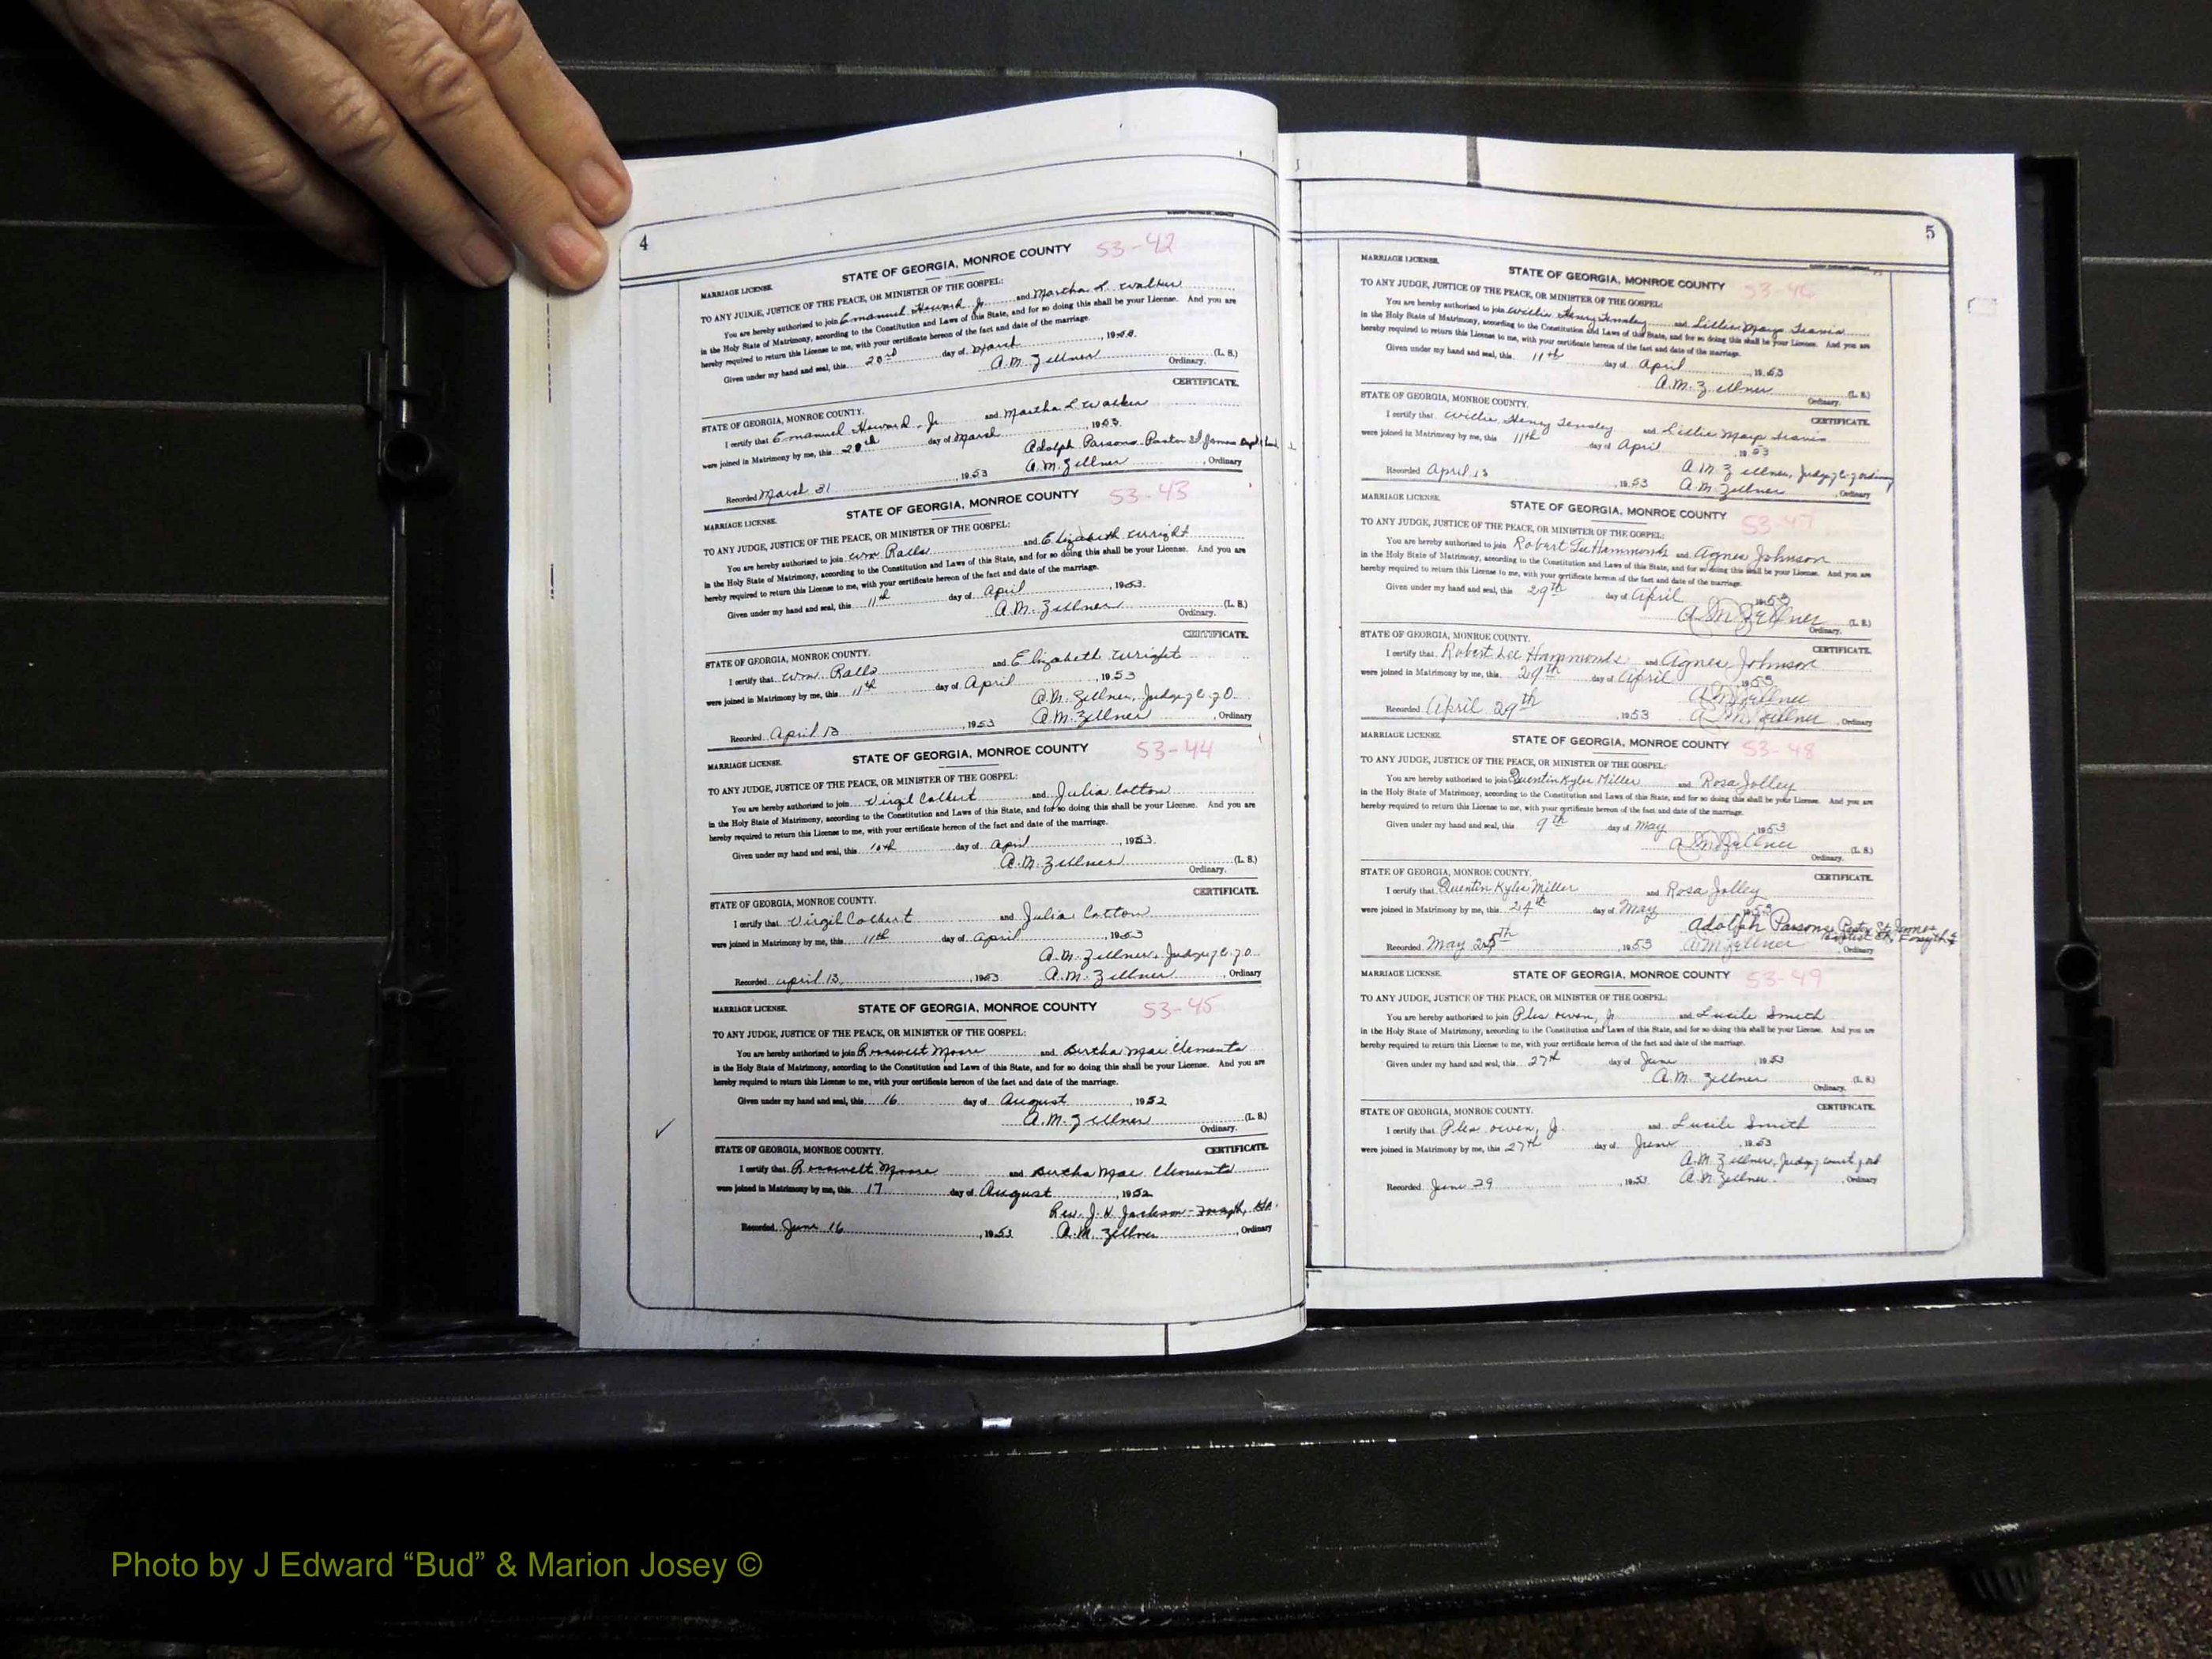 4
STATE OF GEORGIA, MONROE COUNTY 53-42
MARRIAGE LICENSE.
TO ANY JUDGE, JUSTICE OF THE PEACE, OR MINISTER OF THE GOSPEL:
You are hereby authorized to join Emanuel Howard Jr. and Martha L. Walker
in the Holy State of Matrimony, according to the Constitution and Laws of this State, and for so doing this shall be your License. And you are
hereby required to return this License to me, with your certificate hereon of the fact and date of the marriage.
Given under my hand and seal, this day of March, 19
A. M. Zellner (L. S.)
Ordinary.
CERTIFICATE.
STATE OF GEORGIA, MONROE COUNTY.
I certify that Emanuel Howard, Jr. and Martha L. Walker
were joined in Matrimony by me, this day of March, 1953.
Adolph Parsons Pastor St James
Recorded March 31, 1953 A. M. Zellner, Ordinary
STATE OF GEORGIA, MONROE COUNTY 53-43
MARRIAGE LICENSE.
TO ANY JUDGE, JUSTICE OF THE PEACE, OR MINISTER OF THE GOSPEL:
You are hereby authorized to join Wm Ralls and Elizabeth Wright
in the Holy State of Matrimony, according to the Constitution and Laws of this State, and for so doing this shall be your License. And you are
hereby required to return this License to me, with your certificate hereon of the fact and date of the marriage.
Given under my hand and seal, this 11th day of April, 1953.
A. M. Zellner (L. S.)
Ordinary.
CERTIFICATE.
STATE OF GEORGIA, MONROE COUNTY.
I certify that Wm. Ralls and Elizabeth Wright
were joined in Matrimony by me, this 11th day of April, 1953
A. M. Zellner, Judge C. of O.
Recorded April 13, 1953 A. M. Zellner, Ordinary
STATE OF GEORGIA, MONROE COUNTY 53-44
MARRIAGE LICENSE.
TO ANY JUDGE, JUSTICE OF THE PEACE, OR MINISTER OF THE GOSPEL:
You are hereby authorized to join Virgil Colbert and Julia Cotton
in the Holy State of Matrimony, according to the Constitution and Laws of this State, and for so doing this shall be your License. And you are
hereby required to return this License to me, with your certificate hereon of the fact and date of the marriage.
Given under my hand and seal, this 10th day of April, 1953.
A. M. Zellner (L. S.)
Ordinary.
CERTIFICATE.
STATE OF GEORGIA, MONROE COUNTY.
I certify that Virgil Colbert and Julia Cotton
were joined in Matrimony by me, this 11th day of April, 1953
A. M. Zellner, Judge C. of O.
Recorded April 13, 1953 A. M. Zellner, Ordinary
MARRIAGE LICENSE. STATE OF GEORGIA, MONROE COUNTY 53-45
TO ANY JUDGE, JUSTICE OF THE PEACE, OR MINISTER OF THE GOSPEL:
You are hereby authorized to join Roosevelt Moore and Bertha Mae Clements
in the Holy State of Matrimony, according to the Constitution and Laws of this State, and for so doing this shall be your License. And you are
hereby required to return this License to me, with your certificate hereon of the fact and date of the marriage.
Given under my hand and seal, this 16 day of August, 1952
A. M. Zellner (L. S.)
Ordinary.
STATE OF GEORGIA, MONROE COUNTY. CERTIFICATE.
I certify that Roosevelt Moore and Bertha Mae Clements
were joined in Matrimony by me, this 17 day of August, 1952
Rev. J. H. Jackson - Ga.
Recorded June 16, 1953 A. M. Zellner, Ordinary
5
MARRIAGE LICENSE. STATE OF GEORGIA, MONROE COUNTY 53-46
TO ANY JUDGE, JUSTICE OF THE PEACE, OR MINISTER OF THE GOSPEL:
You are hereby authorized to join Willie Henry Tensley and Lillie Maye Travis
in the Holy State of Matrimony, according to the Constitution and Laws of this State, and for so doing this shall be your License. And you are
hereby required to return this License to me, with your certificate hereon of the fact and date of the marriage.
Given under my hand and seal, this 11th day of April, 1953
A. M. Zellner (L. S.)
Ordinary.
STATE OF GEORGIA, MONROE COUNTY. CERTIFICATE.
I certify that Willie Henry Tensley and Lillie Maye Travis
were joined in Matrimony by me, this 11th day of April, 1953
A. M. Zellner, Judge C. of Ordinary
Recorded April 13, 1953 A. M. Zellner, Ordinary
MARRIAGE LICENSE. STATE OF GEORGIA, MONROE COUNTY 53-47
TO ANY JUDGE, JUSTICE OF THE PEACE, OR MINISTER OF THE GOSPEL:
You are hereby authorized to join Robert Lee Hammonds and Agnes Johnson
in the Holy State of Matrimony, according to the Constitution and Laws of this State, and for so doing this shall be your License. And you are
hereby required to return this License to me, with your certificate hereon of the fact and date of the marriage.
Given under my hand and seal, this 29th day of April 1953
A M Zellner (L. S.)
Ordinary.
STATE OF GEORGIA, MONROE COUNTY. CERTIFICATE.
I certify that Robert Lee Hammonds and Agnes Johnson
were joined in Matrimony by me, this 29th day of April 1953
A M Zellner
Recorded April 29th, 1953 A M Zellner, Ordinary
MARRIAGE LICENSE. STATE OF GEORGIA, MONROE COUNTY 53-48
TO ANY JUDGE, JUSTICE OF THE PEACE, OR MINISTER OF THE GOSPEL:
You are hereby authorized to join Quentin Kyles Miller and Rosa Jolley
in the Holy State of Matrimony, according to the Constitution and Laws of this State, and for so doing this shall be your License. And you are
hereby required to return this License to me, with your certificate hereon of the fact and date of the marriage.
Given under my hand and seal, this 9th day of May 1953
A M Zellner (L. S.)
Ordinary.
STATE OF GEORGIA, MONROE COUNTY. CERTIFICATE.
I certify that Quentin Kyles Miller and Rosa Jolley
were joined in Matrimony by me, this 24th day of May 1953
Adolph Parsons Pastor St. James
Baptist Ch, Forsyth
Recorded May 25th 1953 A M Zellner Ordinary
MARRIAGE LICENSE. STATE OF GEORGIA, MONROE COUNTY 53-49
TO ANY JUDGE, JUSTICE OF THE PEACE, OR MINISTER OF THE GOSPEL:
You are hereby authorized to join Ples Owen, Jr. and Lucile Smith
in the Holy State of Matrimony, according to the Constitution and Laws of this State, and for so doing this shall be your License. And you are
hereby required to return this License to me, with your certificate hereon of the fact and date of the marriage.
Given under my hand and seal, this 27th day of June, 1953
A. M. Zellner (L. S.)
Ordinary.
STATE OF GEORGIA, MONROE COUNTY. CERTIFICATE.
I certify that Ples Owen, Jr. and Lucile Smith
were joined in Matrimony by me, this 27th day of June, 1953
A. M. Zellner, Judge Court of Ord
Recorded June 29, 1953 A. M. Zellner, Ordinary
Photo by J Edward “Bud” & Marion Josey ©